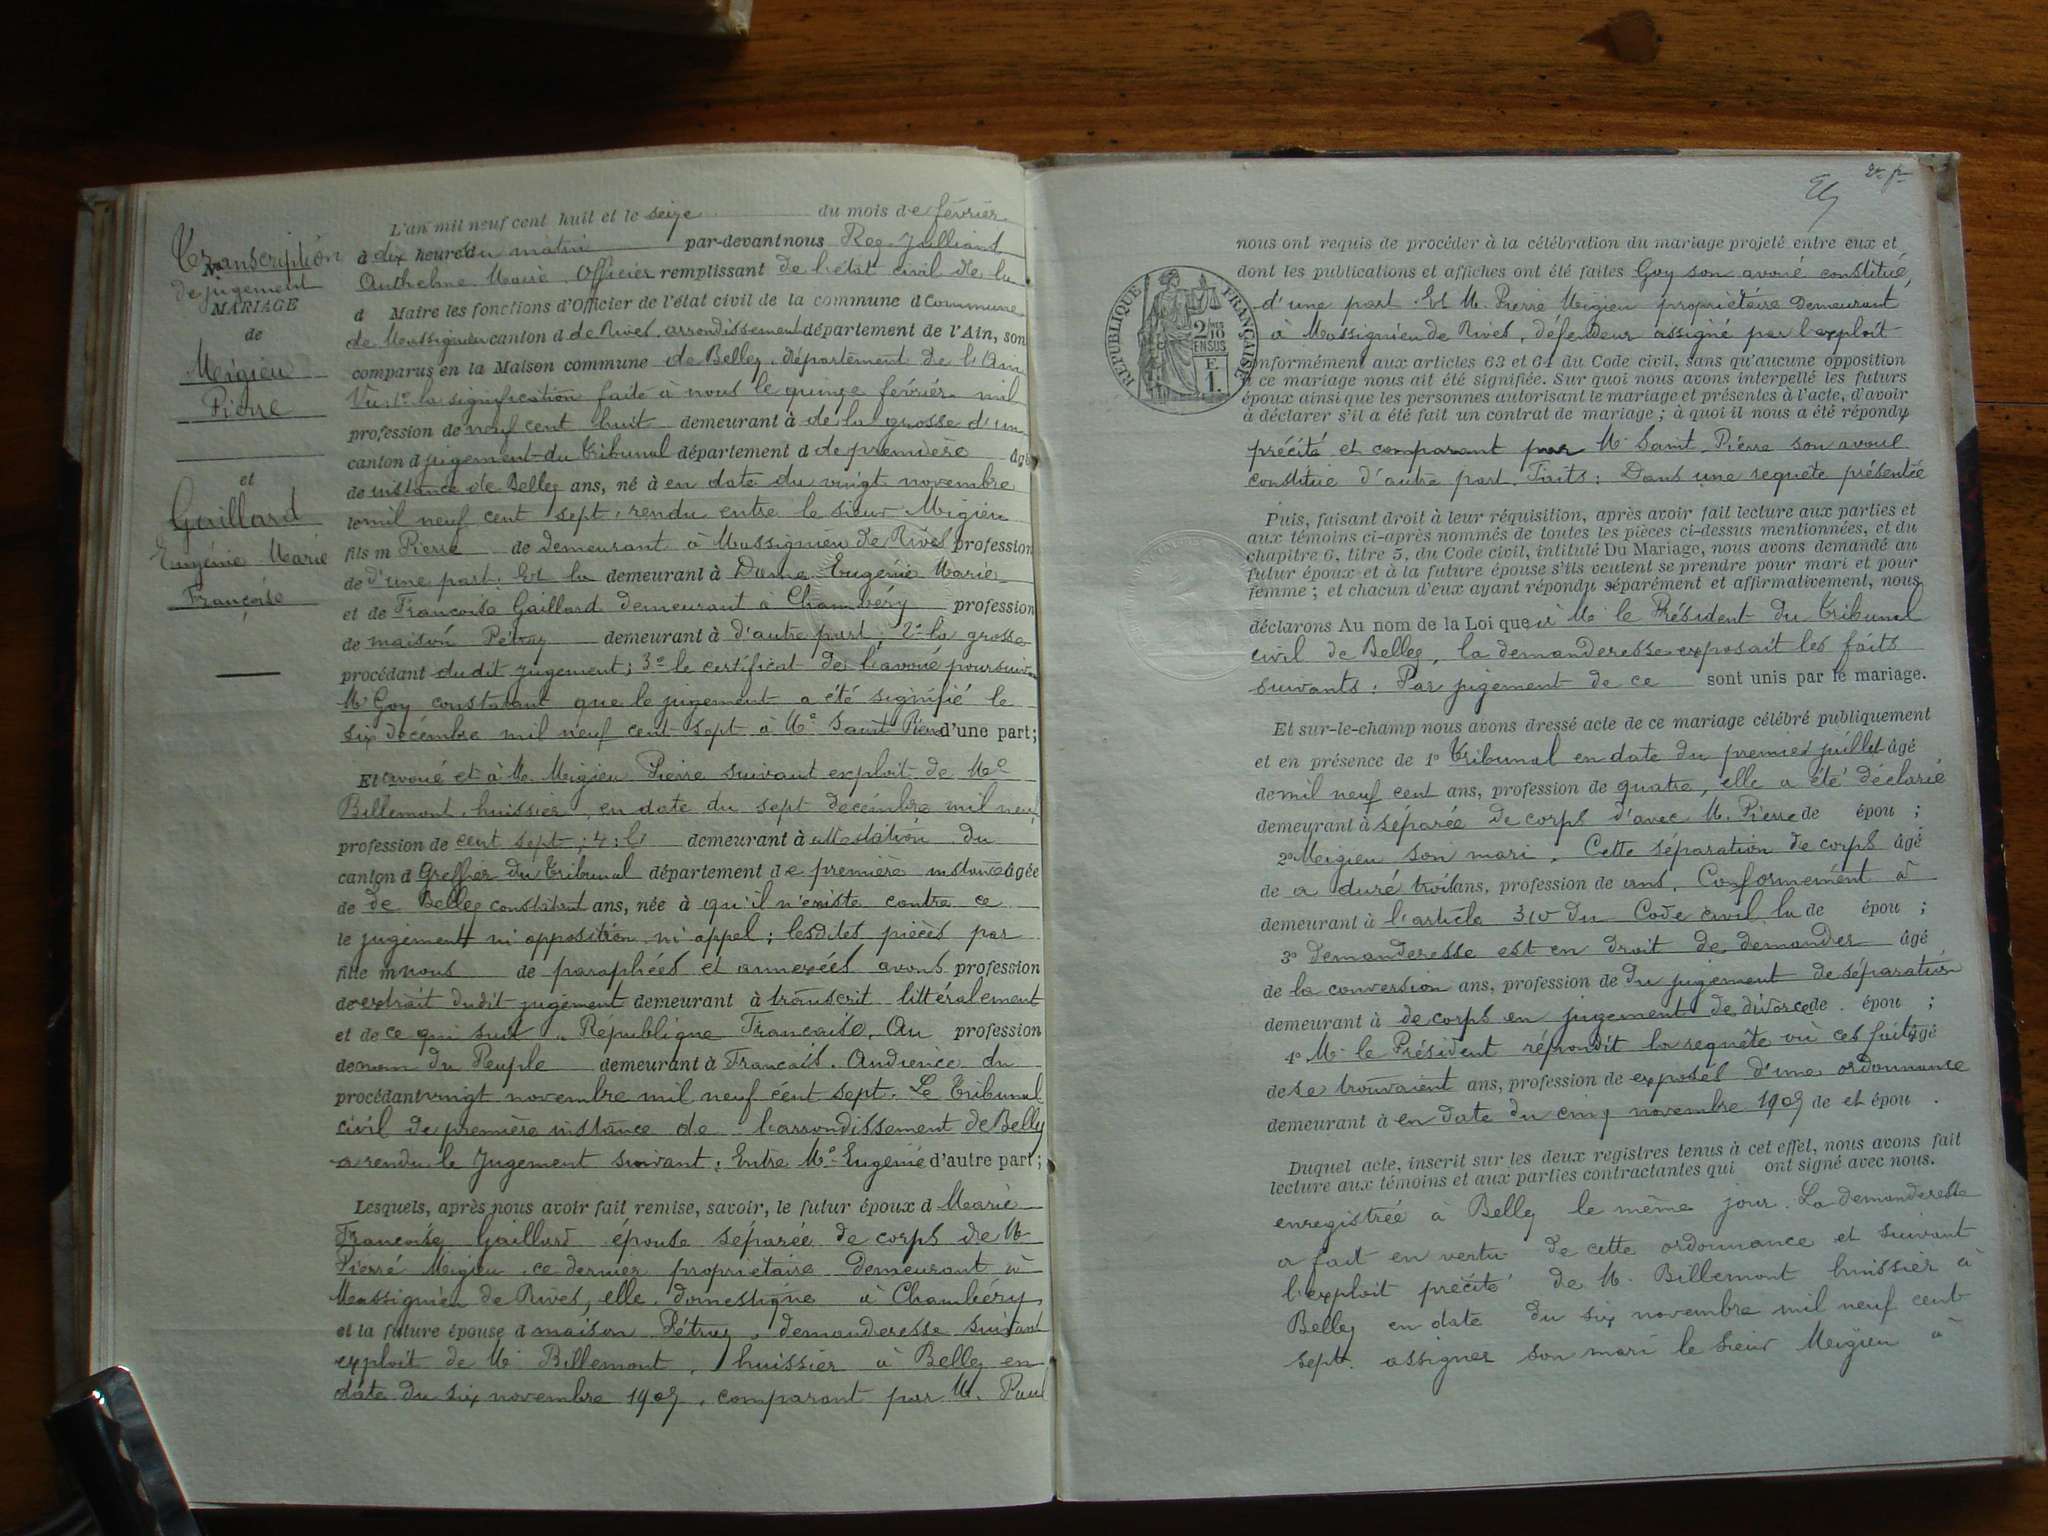 Transcription
de jugement
MARIAGE
de
Meigieu
Pierre
et
Gaillard
Eugénie Marie
Françoise
L'an mil neuf cent huit et le seize du mois de février
à dix heures du matin par-devant nous Rey-Julliand
Anthelme Maire Officier remplissant de l'état civil de la
d Maire les fonctions d'Officier de l'état civil de la commune d commune
de Massignieu canton d de Rives, arrondissement département de l'Ain, son
comparus en la Maison commune de Belley, département de l'Ain
Vu: 1º la signification faite à nous le quinze février mil
profession de neuf cent huit demeurant à de la grosse d'un
canton d jugement du Tribunal département d de première âgé
de instance de Belley ans, né à en date du vingt novembre
le mil neuf cent sept, rendu entre le sieur Migieu
fils m Pierre de demeurant à Massignieu de Rives profession
de d'une part. Et la demeurant à Dame Eugénie Marie
et de Françoise Gaillard demeurant à Chambéry profession
de maison Pétraz demeurant à d'autre part; 2º la grosse
procédant dudit jugement; 3º le certificat de l'avoué poursuivant
Me Goy constatant que le jugement a été signifié le
six décembre mil neuf cent sept à Me Saint Pierre d'une part;
Et avoué et à M. Meigieu Pierre suivant exploit de Me
Billemont, huissier, en date du sept décembre mil neuf
profession de cent sept; 4: l' demeurant à attestation du
canton d Greffier du Tribunal département de première instance âgée
de de Belley constatant ans, née à qu'il n'existe contre ce
le jugement ni opposition ni appel; lesdites pièces par
fille m nous de paraphées et annexées avons profession
de extrait dudit jugement demeurant à transcrit littéralement
et de ce qui suit " République Française. Au profession
de nom du Peuple demeurant à Français. Audience du
procédant vingt novembre mil neuf cent sept. Le Tribunal
civil de première instance de l'arrondissement de Belley
a rendu le Jugement suivant: Entre Me Eugénie d'autre part;
Lesquels, après nous avoir fait remise, savoir, le futur époux d Marie
Françoise Gaillard épouse séparée de corps de M
Pierre Meigieu, ce dernier propriétaire demeurant à
Massignieu de Rives, elle domestique à Chambéry
et la future épouse d maison Pétraz, demanderesse suivant
exploit de M. Billemont, huissier à Belley en
date du six novembre 1907, comparant par M. Paul
nous ont requis de procéder à la célébration du mariage projeté entre eux et
dont les publications et affiches ont été faites Goy son avoué constitué,
d'une part. Et M. Pierre Meigieu propriétaire demeurant
à Massignieu de Rives, défendeur assigné par l'exploit
RÉPUBLIQUE FRANÇAISE
2/10
EN SUS
1 F.
nformément aux articles 63 et 64 du Code civil, sans qu'aucune opposition
à ce mariage nous ait été signifiée. Sur quoi nous avons interpellé les futurs
époux ainsi que les personnes autorisant le mariage et présentes à l'acte, d'avoir
à déclarer s'il a été fait un contrat de mariage; à quoi il nous a été répondu
précité et comparant par M. Saint-Pierre son avoué
constitué d'autre part. Faits: Dans une requête présentée
Puis, faisant droit à leur réquisition, après avoir fait lecture aux parties et
aux témoins ci-après nommés de toutes les pièces ci-dessus mentionnées, et du
chapitre 6, titre 5, du Code civil, intitulé Du Mariage, nous avons demandé au
futur époux et à la future épouse s'ils veulent se prendre pour mari et pour
femme; et chacun d'eux ayant répondu séparément et affirmativement, nous
déclarons Au nom de la Loi que à M. le Président du Tribunal
civil de Belley, la demanderesse exposait les faits
suivants: Par jugement de ce sont unis par le mariage.
Et sur-le-champ nous avons dressé acte de ce mariage célébré publiquement
et en présence de 1º Tribunal en date du premier juillet âgé
de mil neuf cent ans, profession de quatre, elle a été déclarée
demeurant à séparée de corps d'avec M. Pierre de épou ;
2º Meigieu son mari. Cette séparation de corps âgé
de a duré trois ans, profession de ans. Conformément à
demeurant à l'article 310 du Code civil la de épou ;
3º demanderesse est en droit de demander âgé
de la conversion ans, profession de du jugement de séparation
demeurant à de corps en jugement de divorce de épou ;
4º M. le Président répondit la requête où ces faits âgé
de se trouvaient ans, profession de exposés d'une ordonnance
demeurant à en date du cinq novembre 1907 de et épou .
Duquel acte, inscrit sur les deux registres tenus à cet effet, nous avons fait
lecture aux témoins et aux parties contractantes qui ont signé avec nous.
enregistrée à Belley le même jour. La demanderesse
a fait en vertu de cette ordonnance et suivant
l'exploit précité de M. Billemont huissier à
Belley en date du six novembre mil neuf cent
sept assigner son mari le sieur Meigieu à